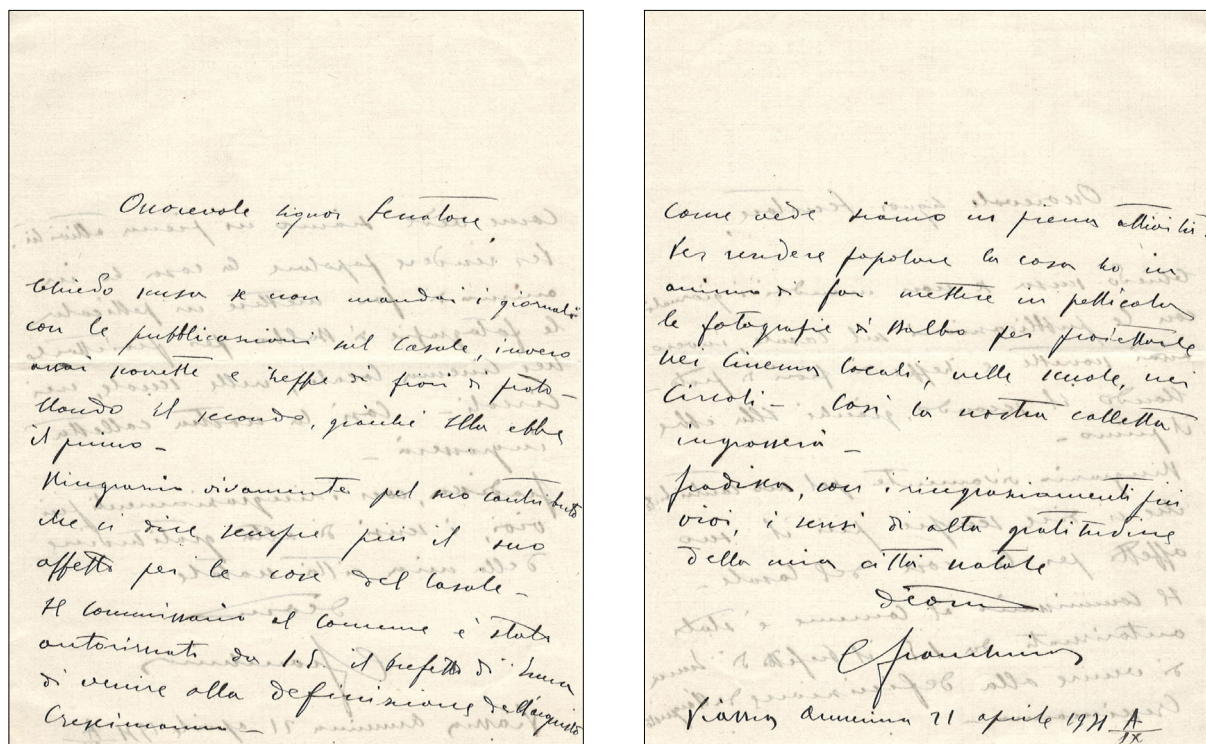 Onorevole Signor Senatore,
Chiedo scusa se non mandai i giornali
con le pubblicazioni sul Casale, invero
assai scorrette e zeppe di fiori di proto –
Mando il secondo, giacché Ella ebbe
il primo –
Ringrazio vivamente pel suo contributo
che ci dice sempre più il suo
affetto per le cose del Casale –
Il commissario al Comune è stato
autorizzato da S.E. il Prefetto di Enna
di venire alla definizione dell'acquisto
Crescimanno –
Come vede siamo in piena attività.
Per rendere popolare la cosa ho in
animo di far mettere in pellicola
le fotografie di Balbo per proiettarle
nei Cinema locali, nelle scuole, nei
Circoli – Così la nostra colletta
ingrosserà –
Gradisca, con i ringraziamenti più
vivi, i sensi di alta gratitudine
della mia città natale
Piazza Armerina 21 aprile 1931 A
IX